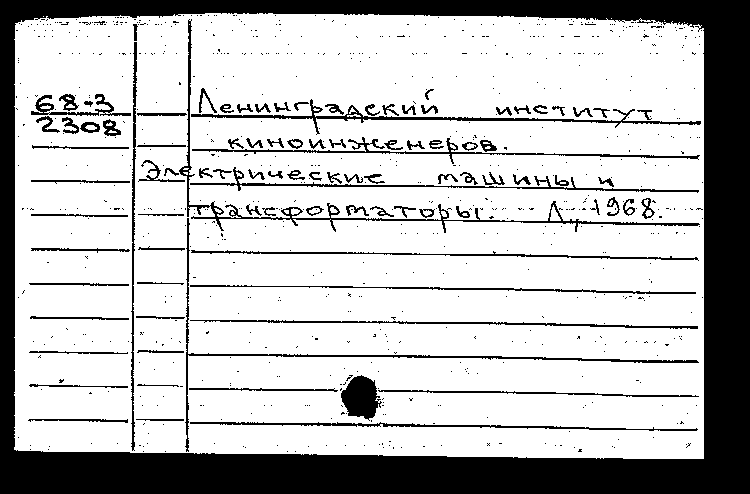 68-3
2308
Ленинградский институт
киноинженеров.
Электрические машины и
трансформаторы. Л., 1968.